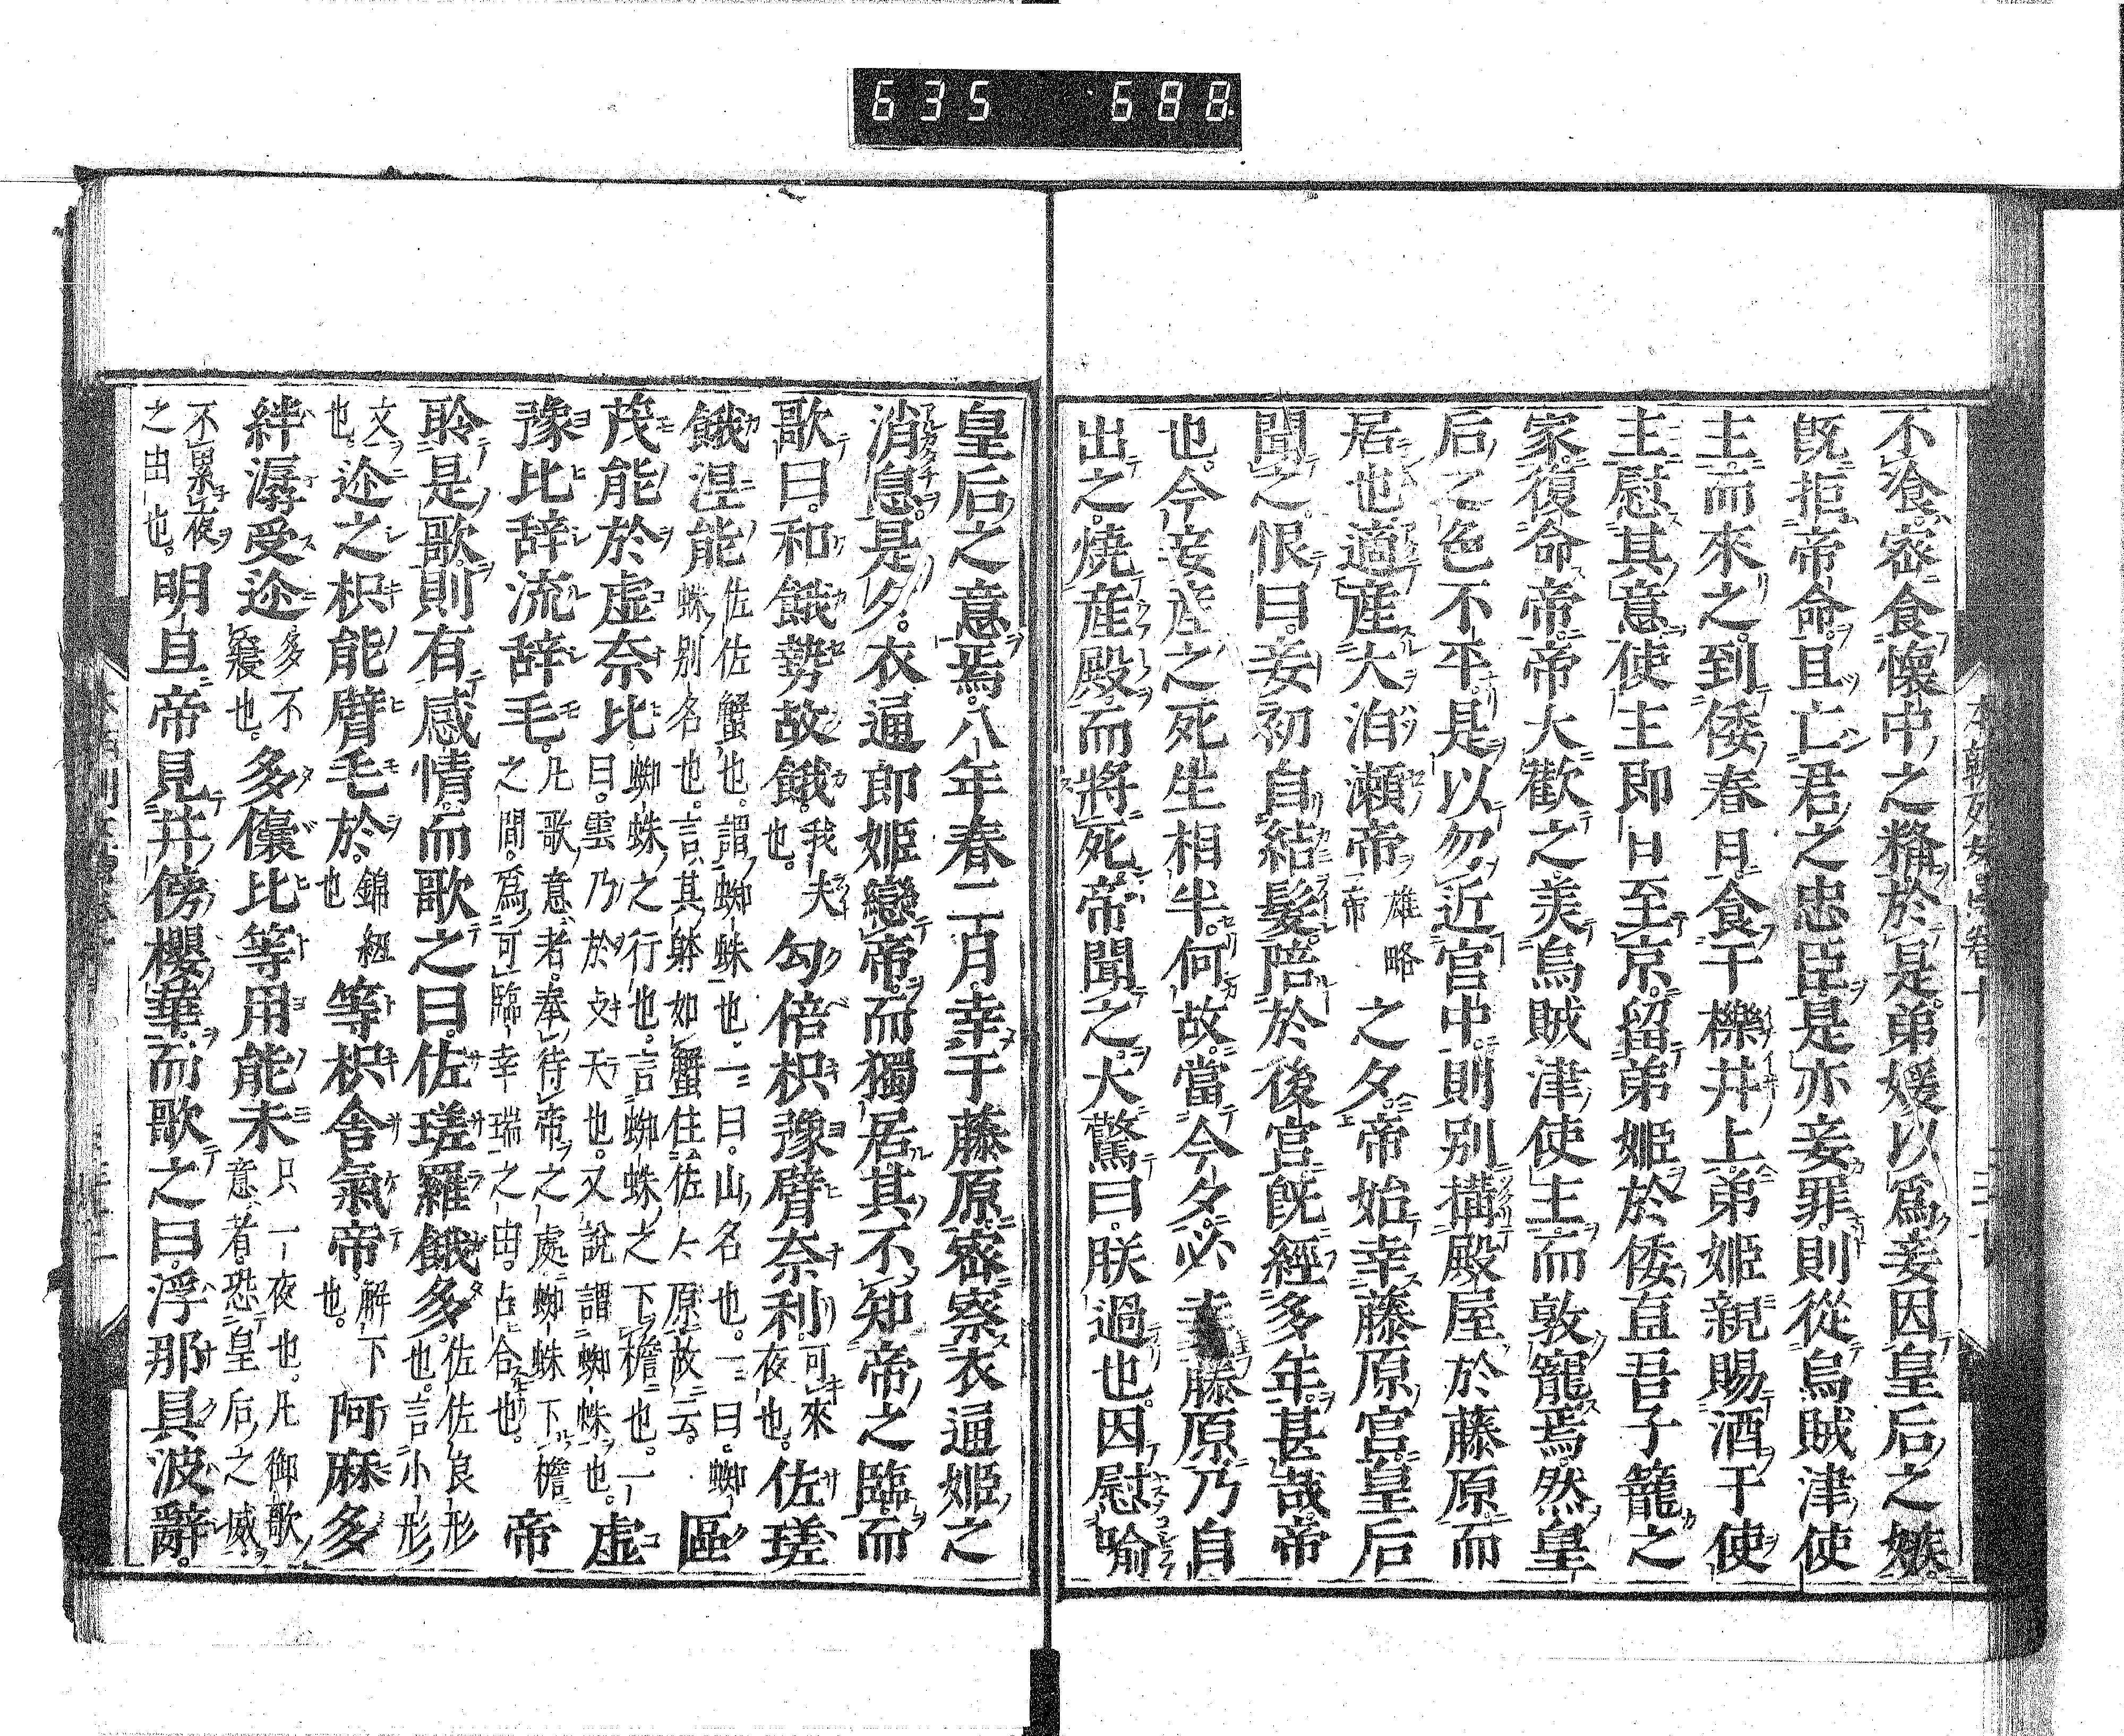 635 688
不飡密食懷中之糒於是弟媛以爲妾因皇后之嫉
既拒帝命且亡君之忠臣是亦妾罪則從烏賊津使
主而來之到倭春日食于櫟井上弟姫親賜酒于使
主慰其意使主即日至京留弟姫於倭直吾子籠之
家復命帝帝大歡之美烏賊津使主而敦寵焉然皇
后之色不平是以勿近宮中則別搆殿屋於藤原而
居也適産大泊瀬帝雄略帝之夕帝始幸藤原宮皇后
聞之恨曰妾初自結髮陪於後宮既經多年甚哉帝
也今妾産之死生相半何故當今夕必幸藤原乃自
出之燒産殿而將死帝聞之大驚曰朕過也因慰喻
皇后之意焉八年春二月幸于藤原密察衣通姫之
消息是夕衣通郎姫戀帝而獨居其不知帝之臨而
歌曰和餓勢故餓我夫也勾倍枳豫臂奈利可來夜也佐瑳
餓涅能佐佐蟹也謂蜘蛛也一曰山名也一曰蜘蛛別名也言其躰如蟹住佐々原故云區
茂能於虚奈比蜘蛛之行也言蜘蛛之下檐也一曰雲乃於支天也又說謂蜘蛛也虚
豫比辭流辭毛凡歌意者奉待帝之處蜘蛛下檐之間爲可臨幸瑞之由占合也帝
聆是歌則有感情而歌之曰佐瑳羅餓多佐佐良形也言小形
文也迩之枳能臂毛於錦紐也等枳舍氣帝解下也阿麻多
絆潺受迩多不襄也多儾比等用能未只一夜也凡御歌意者恐皇后之威
不累夜之出也明旦帝見井傍櫻華而歌之曰浮那具波辭